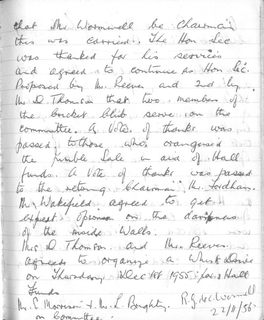 that Mr Wormwell be Chairman
this was carried. The Hon Sec
was thanked for his services
and agreed to continue as Hon Sec.
Proposed by Mr Reeve and 2nd by
Mr D Thomson that two members of
the cricket club serve on the
committee. A Vote of thanks was
passed to those who orangised
the Jumble Sale in aid of Hall
funds. A Vote of thanks was passed
to the retiring Chairman Mr Fordham.
Mr Wakefield agreed to get
expert opinion on the dampness
of the inside Walls.
Mrs D Thomson and Mrs Reeve
agreed to organize a Whist Drive
on Thursday Dec 1st 1955 for Hall
Funds
Mr S Morrison & Mr L
on Committee.
22/11/56